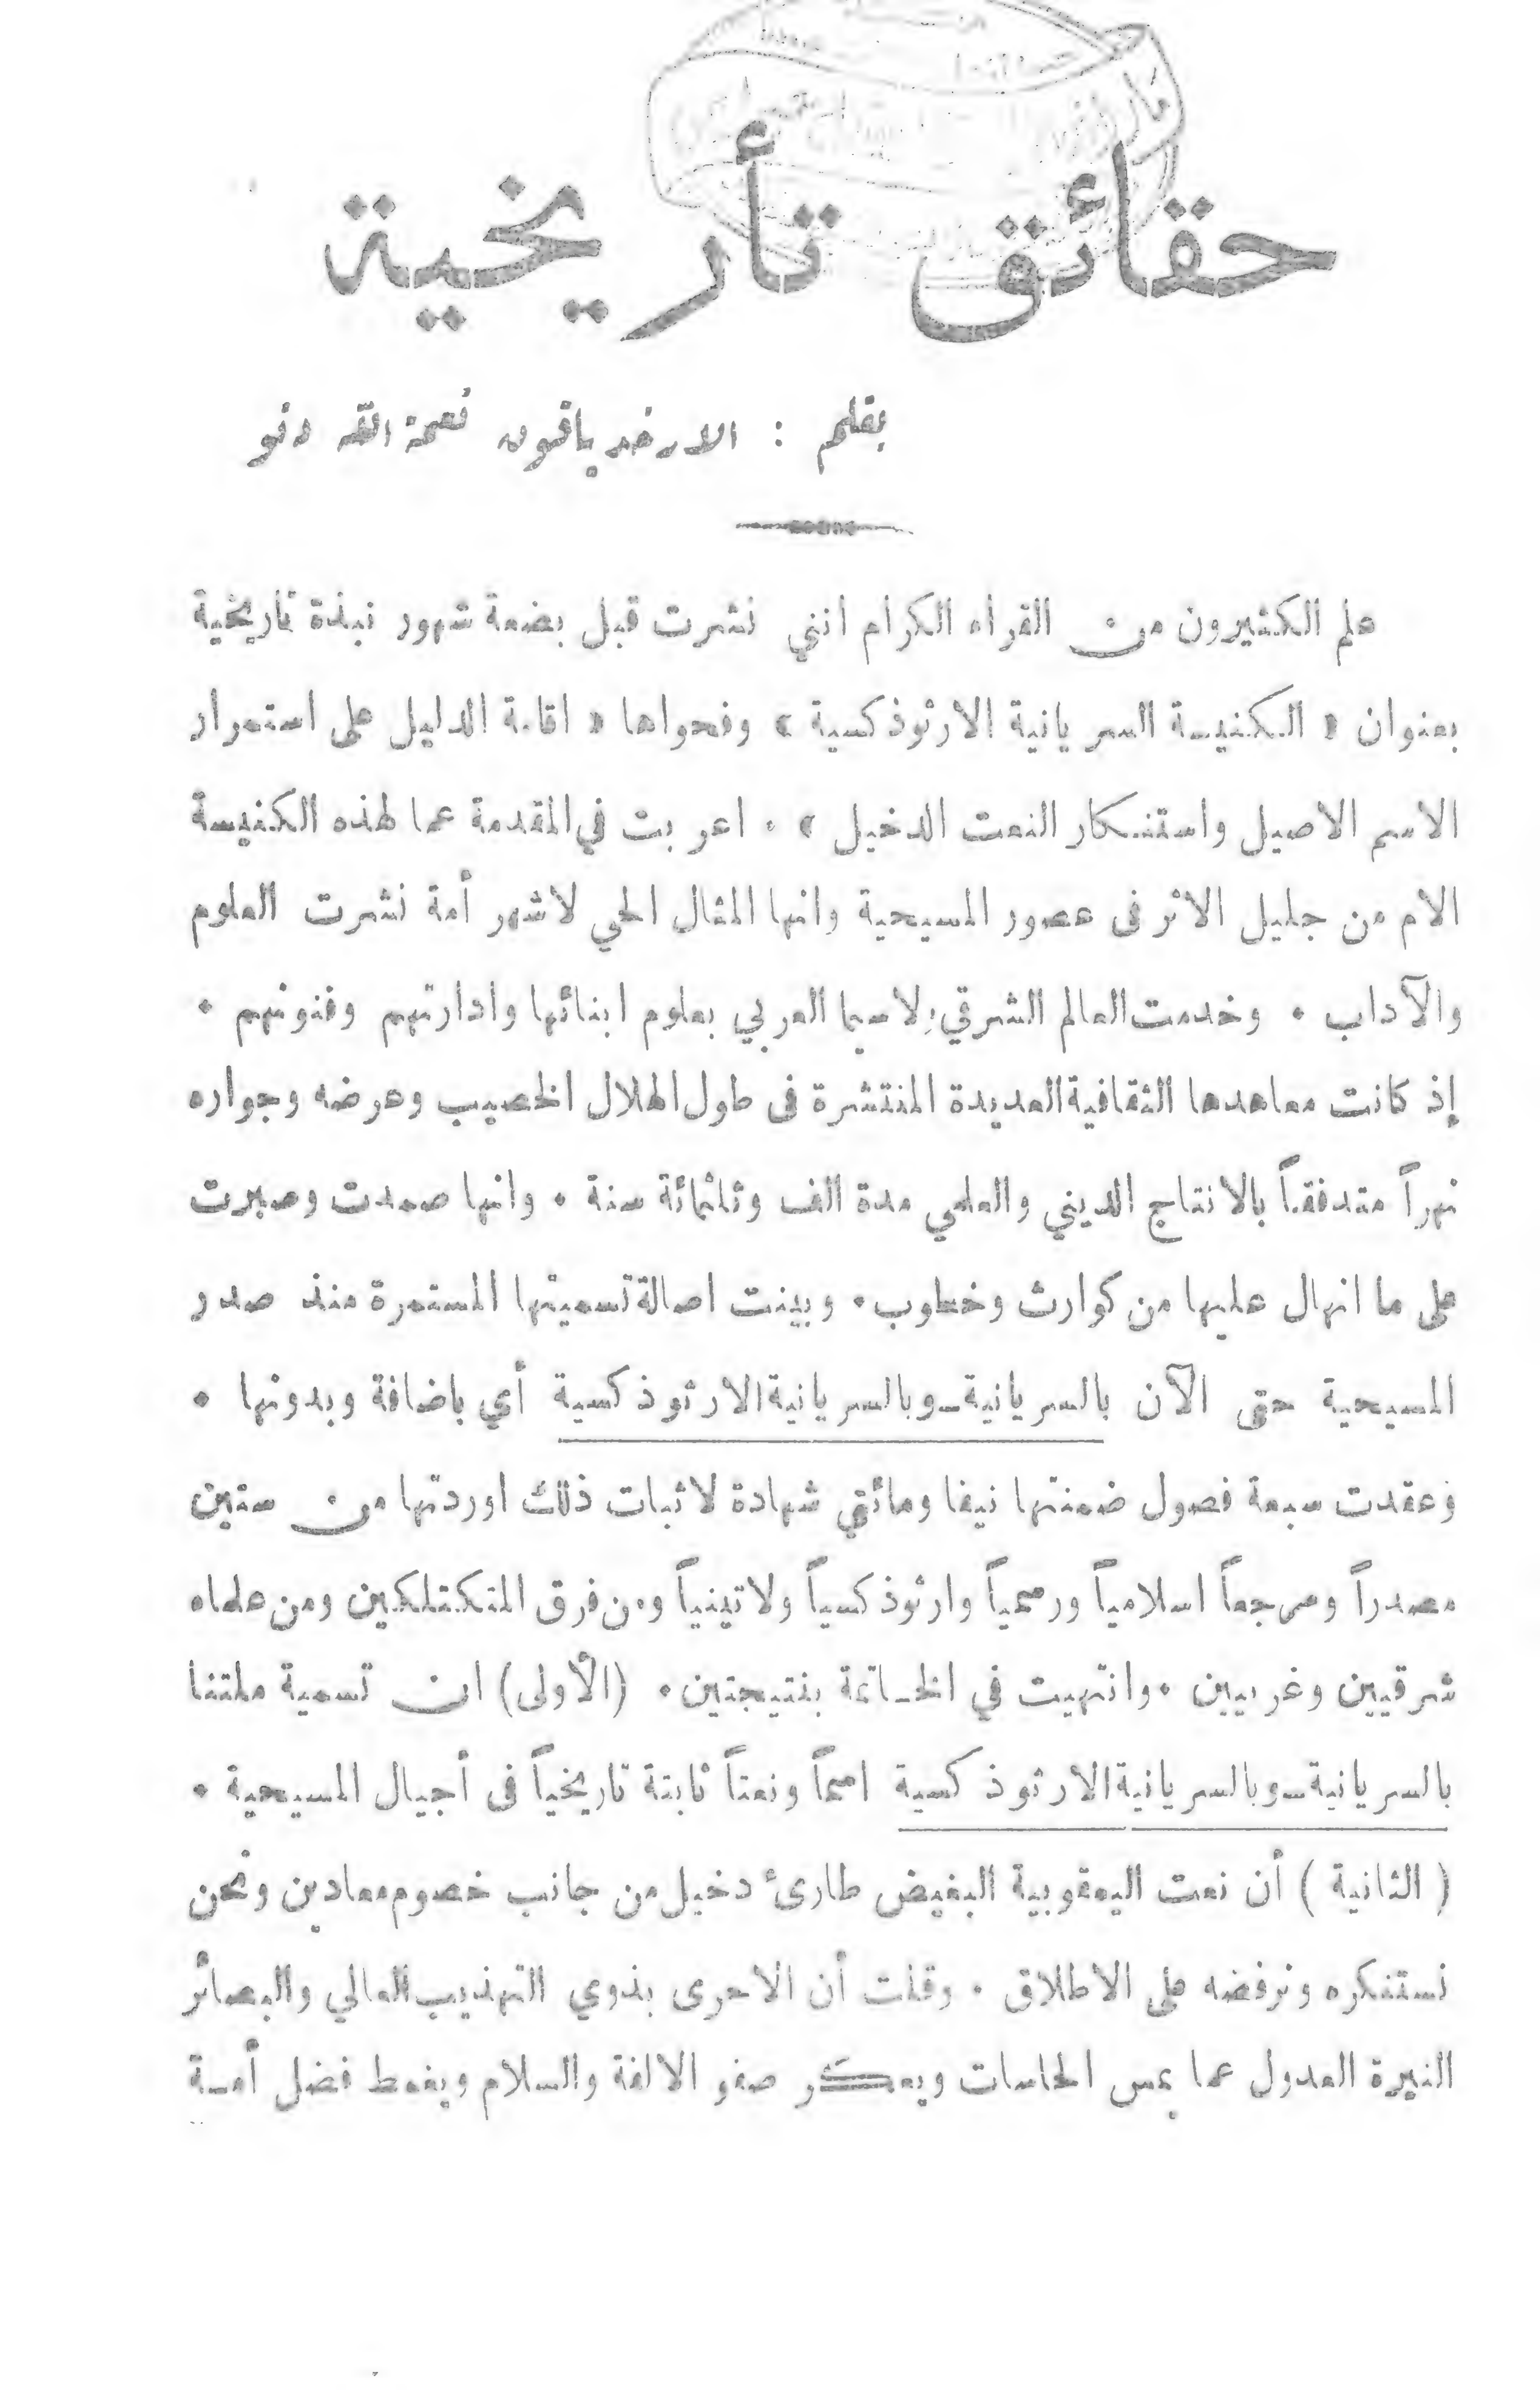 حقائق تأريخية
بقلم : الارخدياقون نعمة الله دنو
علم الكثيرون من القراء الكرام انني نشرت قبل بضعة شهور نبذة تاريخية
بعنوان « الكنيسة السريانية الارثوذكسية » وفحواها « اقامة الدليل على استمرار
الاسم الاصيل واستنكار النعت الدخيل » . اعربت في المقدمة عما لهذه الكنيسة
الام من جليل الاثر فى عصور المسيحية وانها المثال الحي لاشهر أمة نشرت العلوم
والآداب . وخدمت العالم الشرقي لاسيما العربي بعلوم ابنائها وادارتهم وفنونهم .
إذ كانت معاهدها الثقافية العديدة المنتشرة فى طول الهلال الخصيب وعرضه وجواره
نهراً متدفقاً بالانتاج الديني والعلمي مدة الف وثلثمائة سنة . وانها صمدت وصبرت
على ما انهال عليها من كوارث وخطوب . وبينت اصالة تسميتها المستمرة منذ صدر
المسيحية حتى الآن بالسريانية ـ وبالسريانية الارثوذكسية أي باضافة وبدونها .
وعقدت سبعة فصول ضمنتها نيفا ومائتي شهادة لاثبات ذلك اوردتها من ستين
مصدراً ومرجعاً اسلامياً ورسمياً وارثوذكسياً ولاتينياً ومن فرق المتكثلكين ومن علماء
شرقيين وغربيين . وانتهيت في الخاتمة بنتيجتين . (الأولى) ان تسمية ملتنا
بالسريانية ـ وبالسريانية الارثوذكسية اسماً ونعتاً ثابتة تاريخياً فى أجيال المسيحية .
( الثانية ) أن نعت اليعقوبية البغيض طارئ دخيل من جانب خصوم معادين ونحن
نستنكره ونرفضه على الاطلاق . وقلت أن الاحرى بذوي التهذيب العالي والبصائر
النيرة العدول عما يمس الحاسات ويعكر صفو الالفة والسلام ويغمط فضل أمة